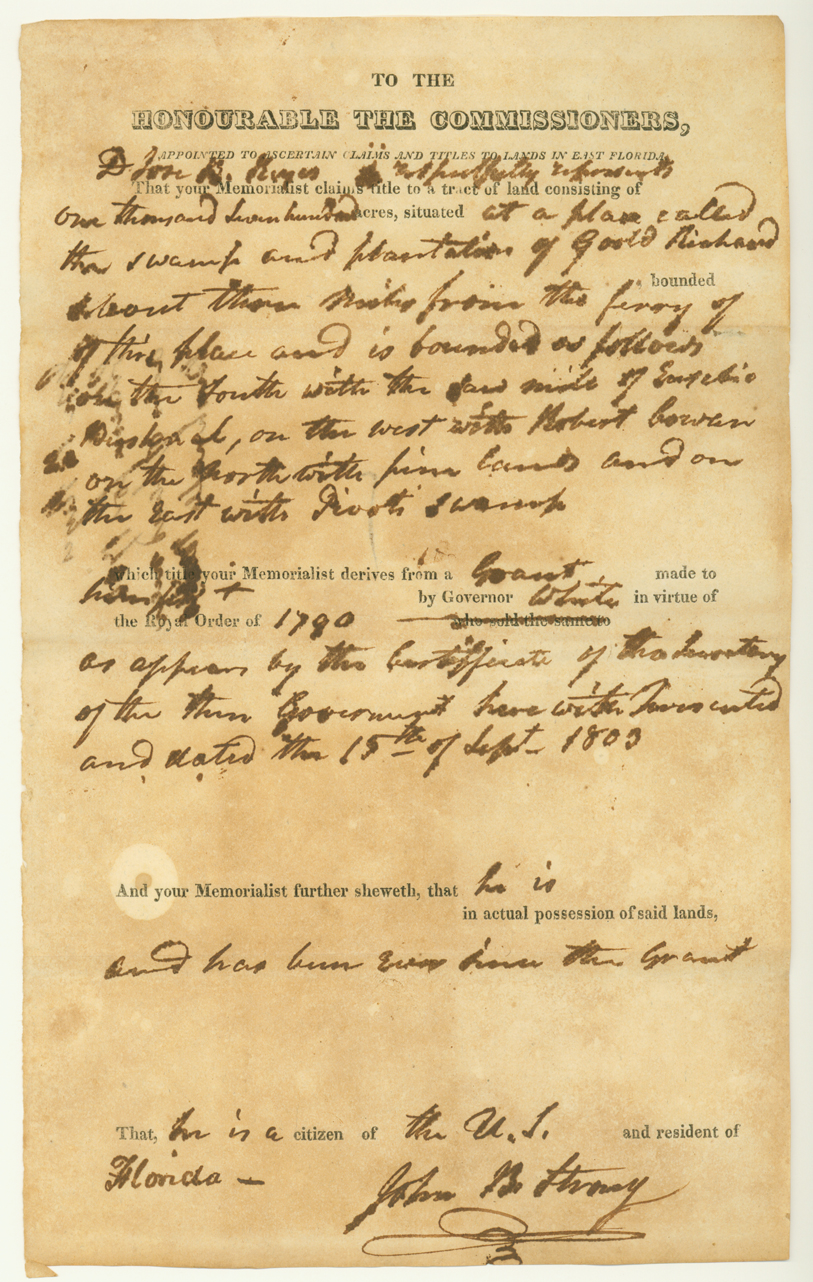 TO THE
HONOURABLE THE COMMISSIONERS,
APPOINTED TO ASCERTAIN CLAIMS AND TITLES TO LANDS IN EAST FLORIDA
D Jose B. Reyes respectfully represents
That your Memorialist claims title to a tract of land consisting of
one thousand seven hundred acres, situated at a place called
the swamp and plantation of Goold Richard
bounded
about three miles from the ferry of
of this place and is bounded as follows
on the South with the saw mill of Eusebio
on the west with Robert Cowan
on the North with pine lands and on
the East with Pivoti swamp
Which title your Memorialist derives from a Grant made to
himself by Governor White in virtue of
the Royal Order of 1790 who sold the same to
as appears by the Certificate of the Secretary
of the then Government here with Presented
and dated the 15th of Sept 1803
And your Memorialist further sheweth, that he is
in actual possession of said lands,
and has been ever since the Grant
That, he is a citizen of the U.S. and resident of
Florida —
John B Strong